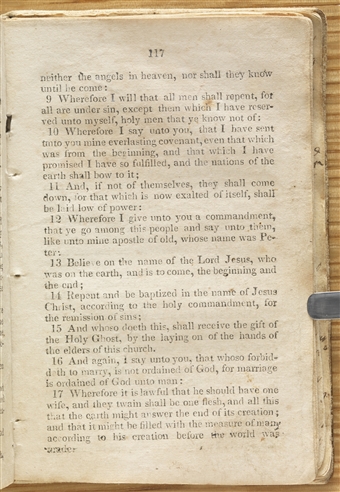 117
neither the angels in heaven, nor shall they know
until he come:
9 Wherefore I will that all men shall repent, for
all are under sin, except them which I have reser-
ved unto myself, holy men that ye know not of:
10 Wherefore I say unto you, that I have sent
unto you mine everlasting covenant, even that which
was from the beginning, and that which I have
promised I have so fulfilled, and the nations of the
earth shall bow to it;
11 And, if not of themselves, they shall come
down, for that which is now exalted of itself, shall
be laid low of power:
12 Wherefore I give unto you a commandment,
that ye go among this people and say unto them,
like unto mine apostle of old, whose name was Pe-
ter:
13 Believe on the name of the Lord Jesus, who
was on the earth, and is to come, the beginning and
the end;
14 Repent and be baptized in the name of Jesus
Christ, according to the holy commandment, for
the remission of sins;
15 And whoso doeth this, shall receive the gift of
the Holy Ghost, by the laying on of the hands of
the elders of this church.
16 And again, I say unto you, that whoso forbid-
deth to marry, is not ordained of God, for marriage
is ordained of God unto man:
17 Wherefore it is lawful that he should have one
wife, and they twain shall be one flesh, and all this
that the earth might answer the end of its creation;
and that it might be filled with the measure of man,
according to his creation before the world was
made: